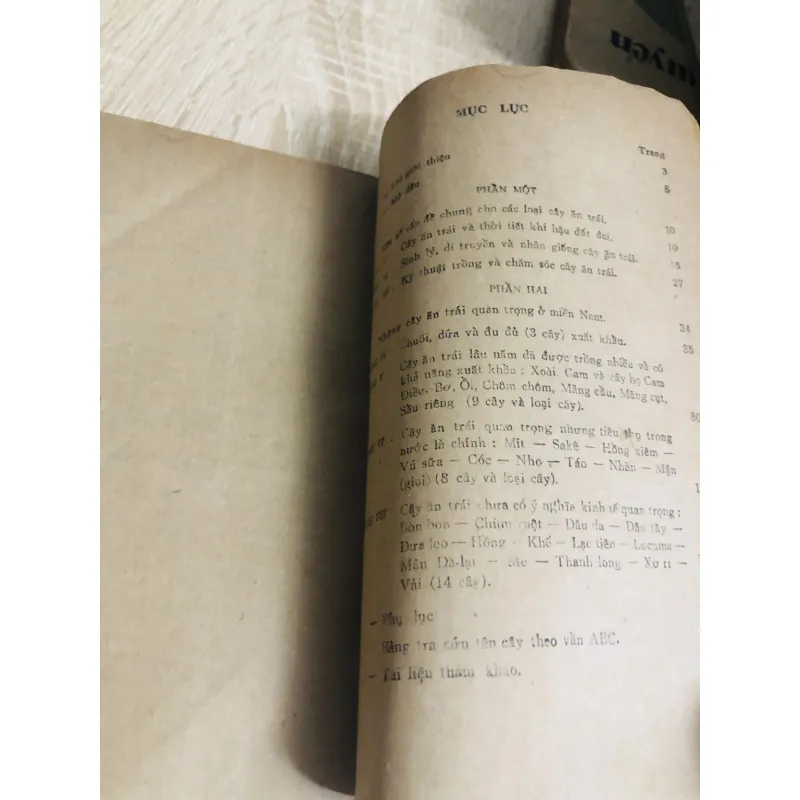 uyến
MỤC LỤC
Trang
giới thiệu 3
Mở đầu 5
PHẦN MỘT
số vấn đề chung cho các loại cây ăn trái. 10
Cây ăn trái và thời tiết khí hậu đất đai. 10
Sinh lý, di truyền và nhân giống cây ăn trái. 15
Kỹ thuật trồng và chăm sóc cây ăn trái. 27
PHẦN HAI
Những cây ăn trái quan trọng ở miền Nam. 34
IV Chuối, dứa và đu đủ (3 cây) xuất khẩu. 35
V Cây ăn trái lâu năm đã được trồng nhiều và có
khả năng xuất khẩu : Xoài, Cam và cây họ Cam
Điều, Bơ, Ổi, Chôm chôm, Mãng cầu, Măng cụt,
Sầu riêng (9 cây và loại cây). 80
VI : Cây ăn trái quan trọng nhưng tiêu thụ trong
nước là chính : Mít — Sakê — Hồng xiêm —
Vú sữa — Cóc — Nho — Táo — Nhãn — Mận
(gioi) (8 cây và loại cây). 1
VII Cây ăn trái chưa có ý nghĩa kinh tế quan trọng :
Bòn bon — Chùm ruột — Dâu da — Dâu tây —
Dưa leo — Hồng - Khế — Lạc tiên — Lucuma —
Mận Đà-lạt — Me — Thanh long — Sơ ri —
Vải (14 cây).
— Phụ lục
Bảng tra cứu tên cây theo vần ABC.
— Tài liệu tham khảo.